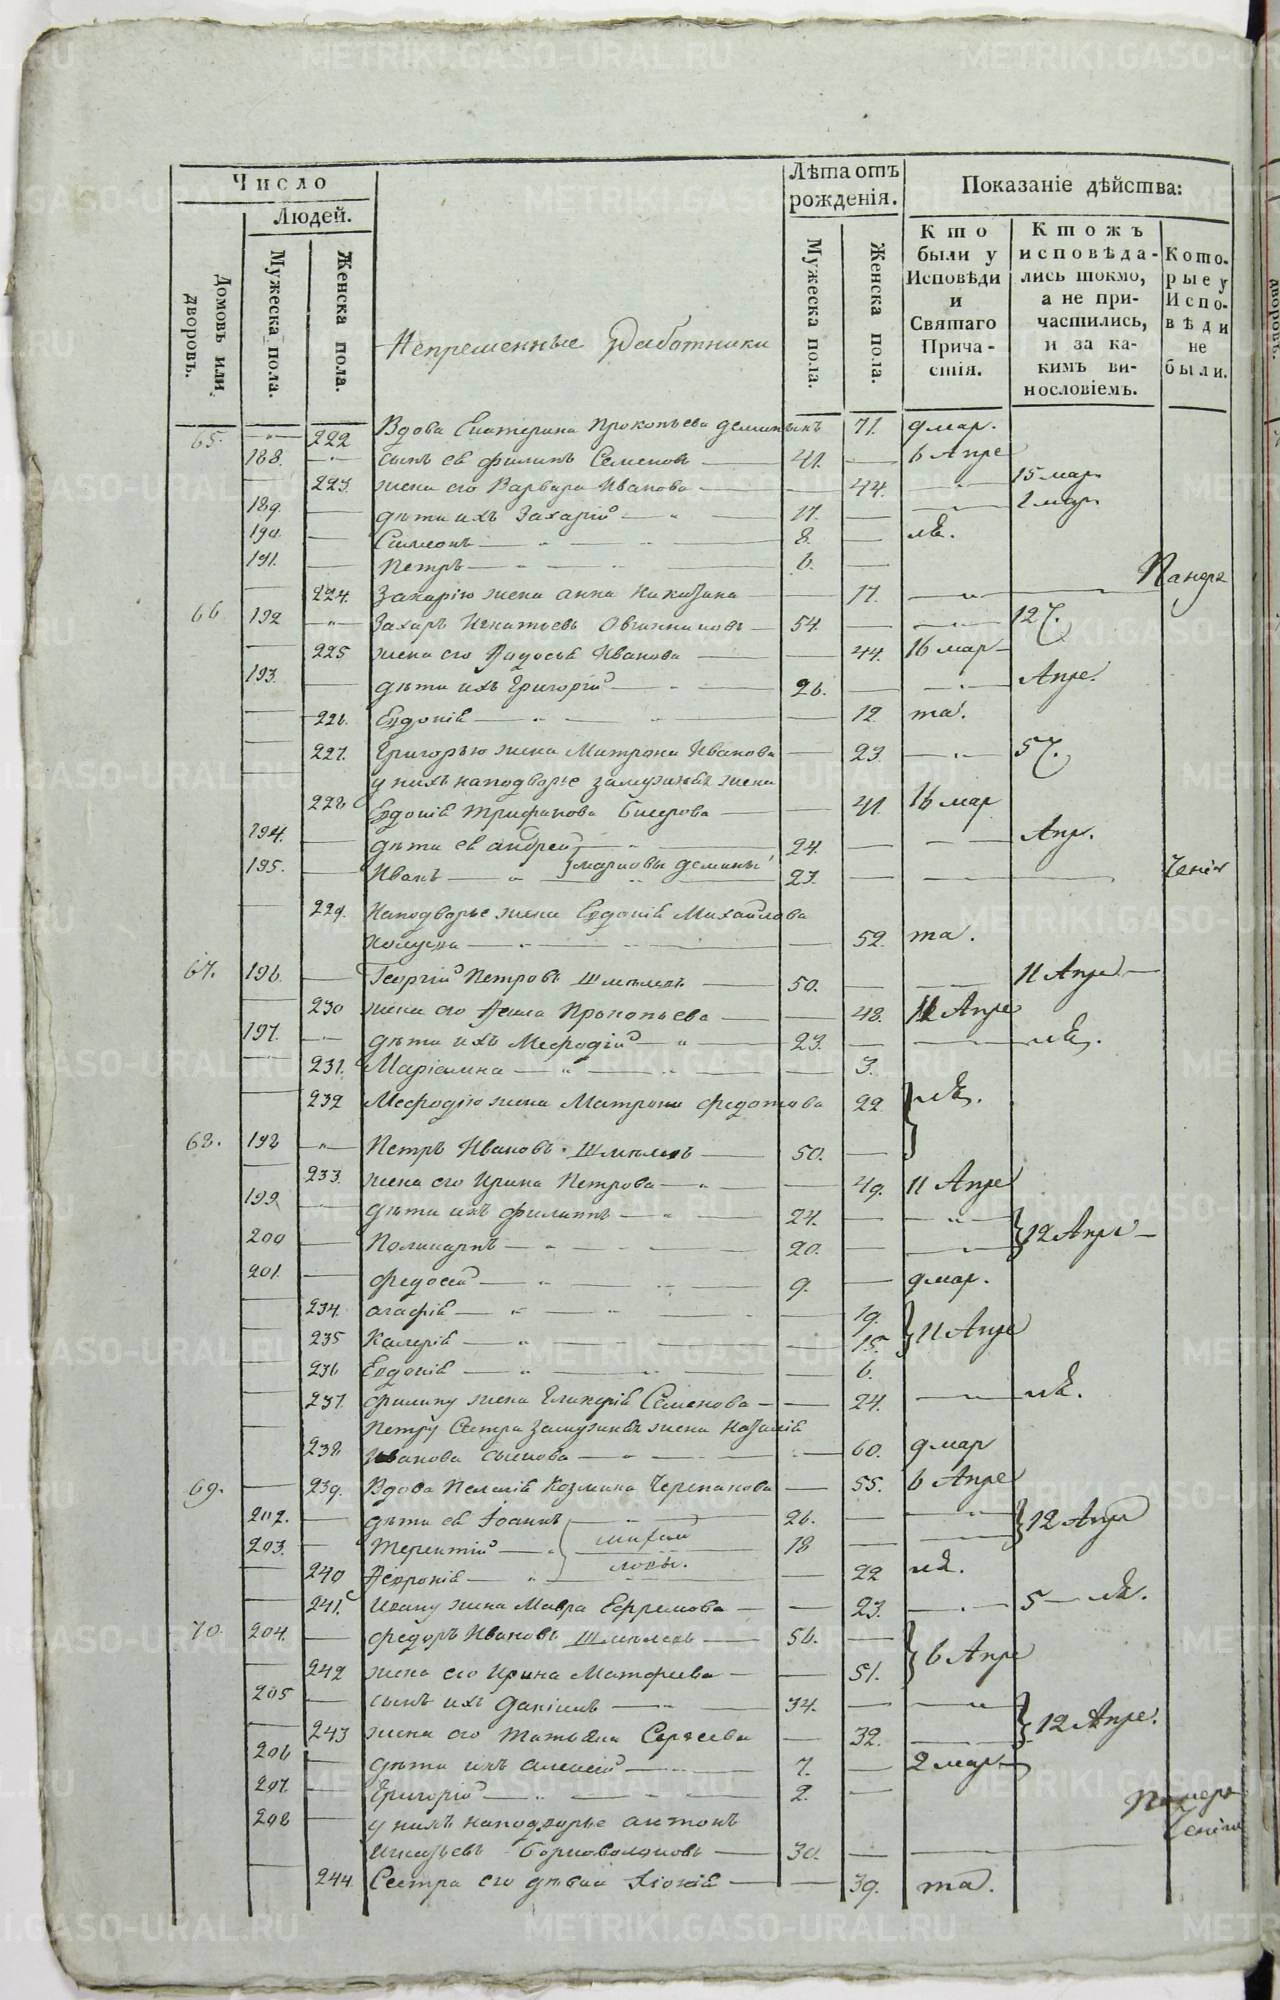 METRIKI.GASO-URAL.RU
Число
Людей.
Домовъ или дворовъ.
Мужеска пола.
Женска пола.
Непременные Работники
Лѣта отъ рожденія.
Мужеска пола.
Женска пола.
Показаніе дѣйства:
Кто были у Исповѣди и Святаго Прича-стія.
Ктожъ исповѣда-лись токмо, а не при-частились, и за ка-кимъ ви-нословіемъ.
Кото-рые у Испо-вѣди не были.
65. 222 Вдова Екатерина Прокопьева 71. 9 мар.
188. сынъ ея Филипъ Семеновъ 41. 6 Апре
223. жена его Варвара Иванова 44. 15 мар
189. дѣти ихъ Захарій 17. 2 мар
190. Симеонъ 8.
191. Петръ 6.
224. Захарію жена анна 17.
66 192 Захаръ Игнатьевъ Овчинниковъ 54. 12
225 жена его Федосья Иванова 44. 16 мар
193. дѣти ихъ Григорій 26. Апре.
226. Евдокія 12 та.
227. Григорью жена Матрона Иванова 23. 5
у нихъ наподворье замужняя жена
228 Евдокія Трифанова Бисерова 41. 16 мар
194. дѣти ея андрей 24. Апр.
195. Иванъ марковы демины 23.
229. Наподворье жена Евдокія Михайлова
52. та.
67. 196. Георгій Петровъ Шмелевъ 50. 11 Апре
230 жена его Прокопьева 48. Апре
197. дѣти ихъ Мефодій 23.
231. Маріамна 3.
232 Мефодію жена Матрона Федотова 22
68. 198 Петръ Ивановъ Шмелевъ 50.
233. жена его Ирина Петрова 49. 11 Апре
199. дѣти ихъ Филиппъ 24.
200 Поликарпъ 20. 12 Апре
201. Федосей 9. 9 мар.
234. агафія 19.
235 Калерія 15. 11 Апре
236 Евдокія 6.
237. Филипу жена Гликерія Семенова 24.
Петру Сестра Замужняя жена
238 Иванова 60. 9 мар
69. 239. Вдова Пелагія Козмина Черепанова 55. 6 Апре
202. дѣти ея Іоаннъ 26. 12 Апре
203. Терентій михай 18
240 Феврония ловы. 22
241. Ивану жена Мавра Ефремова 23. 5
70. 204. Федоръ Ивановъ Шмелевъ 56.
242 жена его Ирина Матфиева 51. 6 Апре
205 сынъ ихъ Даніилъ 34.
243 жена его Татьяна Сергеева 32. 12 Апре.
206 дѣти ихъ алексей 7. 2 мар
207. Григорій 2.
208 у нихъ наподворье антонъ
30.
244. Сестра его дѣвка 39. та.